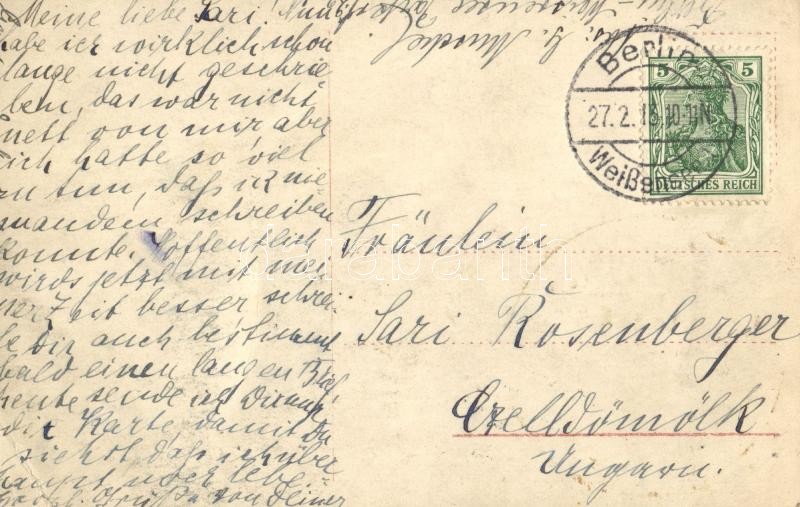 Meine liebe Sari! Nun
habe ich wirklich schon
lange nicht geschrie
ben, das war nicht
nett von mir aber
ich hatte so viel
zu tun, daß ich nie
mandem schreiben
konnte. Hoffentlich
wirds jetzt mit mei
ner Zeit besser schrei-
be Dir auch bestimmt
bald einen langen Brief
heute sende ich Dir nur
die Karte, damit Du
siehst, daß ich über
haupt noch lebe.
Grüße von Deiner
Berlin
27.2.13.10-11N
Weißensee
5 5
DEUTSCHES REICH
Fräulein
Sari Rosenberger
Czelldömölk
Ungarn.
darabanth